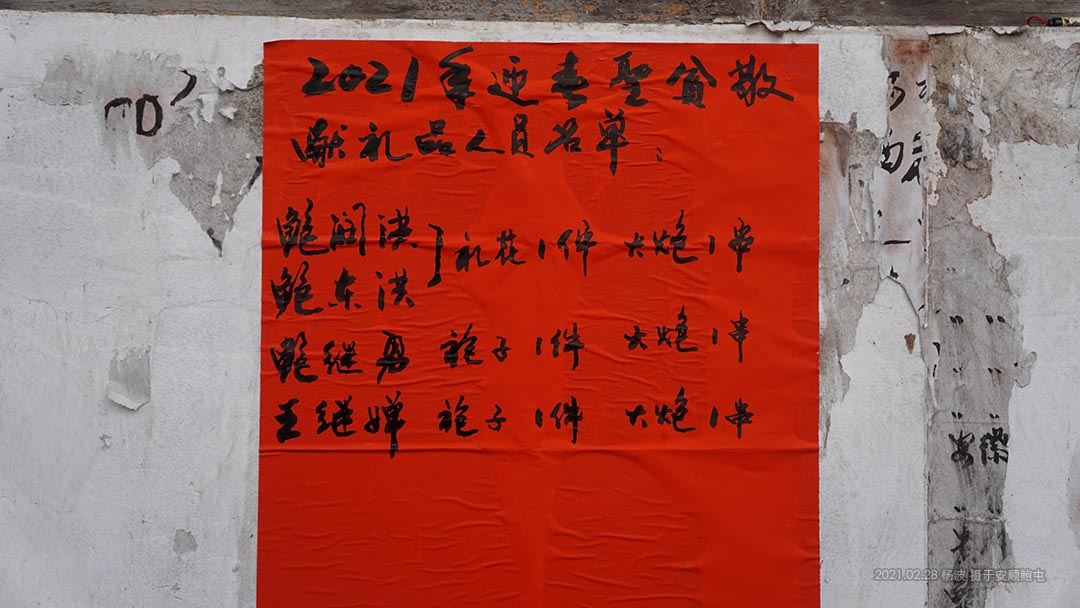 2021年迎春聖敬
献礼品人员名单：
鲍润洪
鲍东洪
礼花1件 大炮1串
鲍继勇 袍子1件 大炮1串
王继婵 袍子1件 大炮1串
2021.02.28 杨波 摄于安顺鲍屯